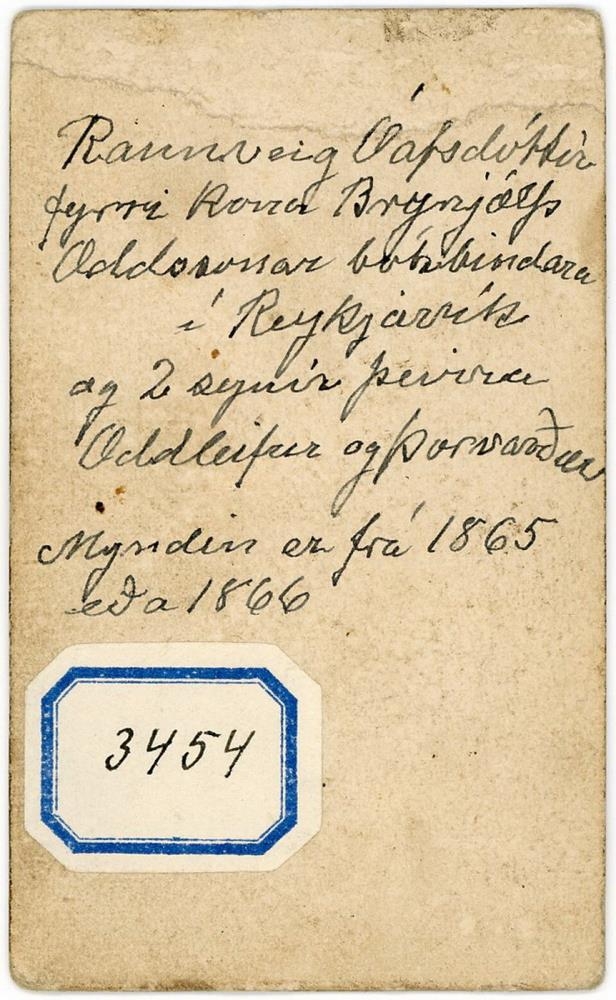 Rannveig Óafsdóttir
fyrri kona Brynjólfs
Oddssonar bókbindara
í Reykjavík
og 2 synir þeirra
Oddleifur og Þorvarður
Myndin er frá 1865
eða 1866
3454